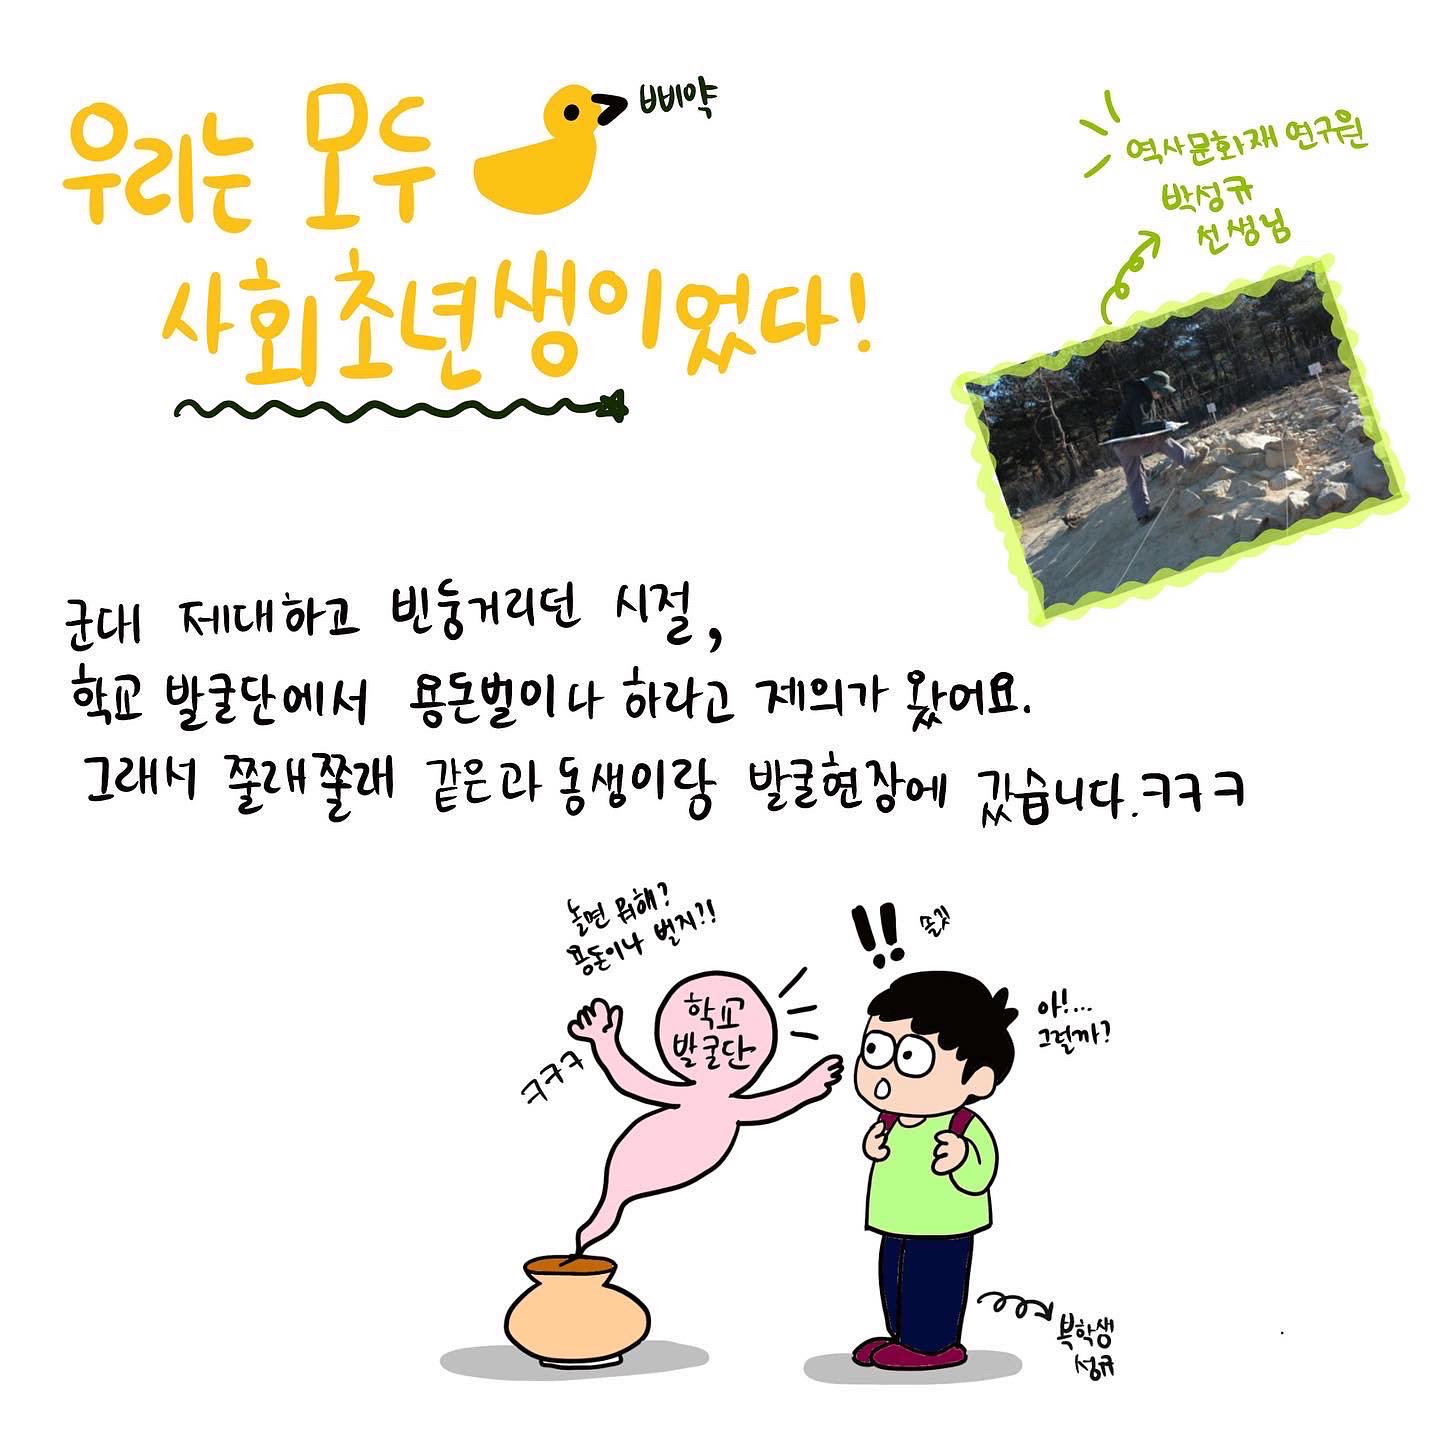 우리는 모두
삐약
사회초년생이었다!
역사문화재 연구원
박성규
선생님
군대 제대하고 빈둥거리던 시절,
학교 발굴단에서 용돈벌이나 하라고 제의가 왔어요.
그래서 쭐래쭐래 같은과 동생이랑 발굴현장에 갔습니다.ㅋㅋㅋ
놀면 뭐해?
용돈이나 벌지?!
ㅋㅋㅋ
학교
발굴단
!!
쫑긋
아!...
그럴까?
복학생
성규